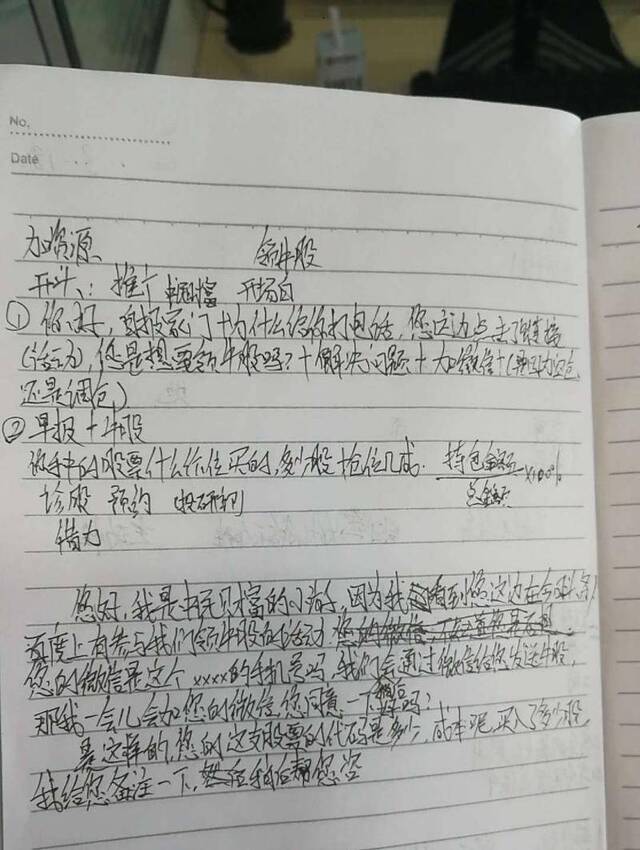 No.
Date
加资源 领牛股
开头：推广 开场白
① 你好，自报家门+为什么给你打电话，您这边点击了链接
(活动)，您是想要领牛股吗？+解决问题+加微信+(
还是调仓)
② 早报+牛股
你手中的股票什么价位买的，多少股+仓位几成. 持仓金额 x100%
诊股 预约 总金额
借力
您好，我是 财富的小 ，因为我 看到您这边在今日头条/
百度上有参与我们领牛股的活动 您的微信
您的微信是这个xxxx的手机号吗，我们会通过微信给您发送牛股，
那我一会儿会加您的微信，您同意一下 好吗？
是这样的，您的这支股票的代码是多少，成本呢，买入了多少股
我给您备注一下，